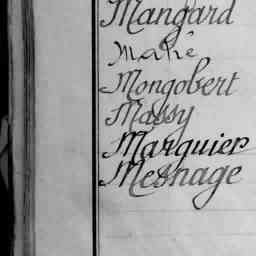 Mangard
Mahé
Mongobert
Massy
Marquier
Mesnage